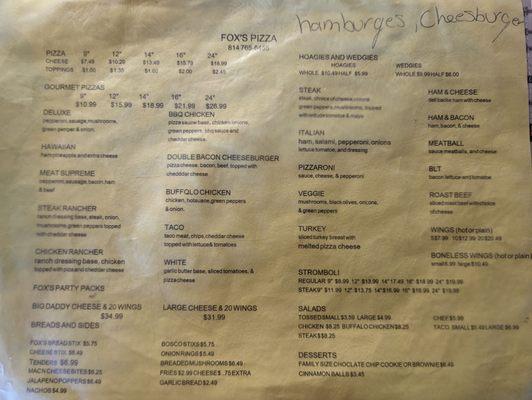 hamburges, Cheesburger
FOX'S PIZZA
814 765-
PIZZA 9" 12" 14" 16" 24"
CHEESE $7.49 $10.29 $13.49 $15.79 $18.99
TOPPINGS $1.00 $1.35 $1.00 $2.00 $2.45
GOURMET PIZZAS
9" 12" 14" 16" 24"
$10.99 $15.99 $18.99 $21.99 $26.99
DELUXE
pepperoni, sausage, mushrooms,
green pepper & onion.
HAWAIIAN
ham pineapple and extra cheese
MEAT SUPREME
pepperoni, sausage, bacon, ham
& beef
STEAK RANCHER
ranch dressing base, steak, onion,
mushrooms, green peppers topped
with cheddar cheese
CHICKEN RANCHER
ranch dressing base, chicken
topped with pizza and cheddar cheese
BBQ CHICKEN
pizza sauce base, chicken, onions,
green peppers, bbq sauce and
cheddar cheese.
DOUBLE BACON CHEESEBURGER
pizza cheese, bacon, beef, topped with
cheddar cheese
BUFFALO CHICKEN
chicken, hot sauce, green peppers
& onion.
TACO
taco meat, chips, cheddar cheese
topped with lettuce & tomatoes
WHITE
garlic butter base, sliced tomatoes, &
pizza cheese
FOX'S PARTY PACKS
BIG DADDY CHEESE & 20 WINGS
$34.99
LARGE CHEESE & 20 WINGS
$31.99
BREADS AND SIDES
FOX'S BREADSTIX $5.75
CHEESE STIX $6.49
TENDERS $6.99
MAC N CHEESE BITES $6.25
JALAPENO POPPERS $6.49
NACHOS $4.99
BOSCO STIX $5.75
ONION RINGS $5.49
BREADED MUSHROOMS $6.49
FRIES $2.99 CHEESE $ .75 EXTRA
GARLIC BREAD $2.49
HOAGIES AND WEDGIES
HOAGIES WEDGIES
WHOLE $10.49 HALF $5.99 WHOLE $9.99 HALF $6.00
STEAK
steak, choice of cheese, onions
green peppers, mushrooms, topped
with lettuce tomatoe & mayo
ITALIAN
ham, salami, pepperoni, onions
lettuce, tomatoe, and dressing
PIZZARONI
sauce, cheese, & pepperoni
VEGGIE
mushrooms, black olives, onions,
& green peppers
TURKEY
sliced turkey breast with
melted pizza cheese
HAM & CHEESE
deli backs ham with cheese
HAM & BACON
ham, bacon, & cheese
MEATBALL
sauce, meatballs, and cheese
BLT
bacon, lettuce and tomatoe
ROAST BEEF
sliced roast beef with choice
of cheese
WINGS (hot or plain)
BONELESS WINGS (hot or plain)
STROMBOLI
SALADS
TOSSED SMALL $3.59 LARGE $4.99 CHEF $5.99
CHICKEN $8.25 BUFFALO CHICKEN $8.25 TACO SMALL $5.49 LARGE $6.99
STEAK $8.25
DESSERTS
FAMILY SIZE CHOCOLATE CHIP COOKIE OR BROWNIE $8.49
CINNAMON BALLS $3.45